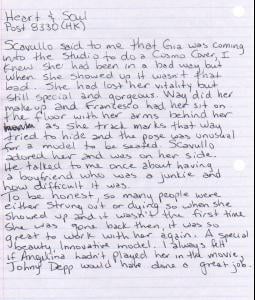 Heart & Soul
Post 8330 (HK)
Scavullo said to me that Gia was coming
into the Studio to do a Cosmo Cover, I
knew she had been in a bad way but
when she showed up it wasn't that
bad. She had lost her vitality but
still special and gorgeous. Way did her
make-up and Francesco had her sit on
the floor with her arms behind her
as she track marks that way
tried to hide and the pose was unusual
for a model to be seated. Scavullo
adored her and was on her side.
He talked to me once about having
a boyfriend who was a junkie and
how difficult it was.
To be honest, so many people were
either strung out or dying so when she
showed up and it wasn't the first time
she was gone back then, it was so
great to work with her again. A special
beauty. Innovative model. I always felt
if Angelina hadn't played her in the movie,
Johny Depp would have done a great job.